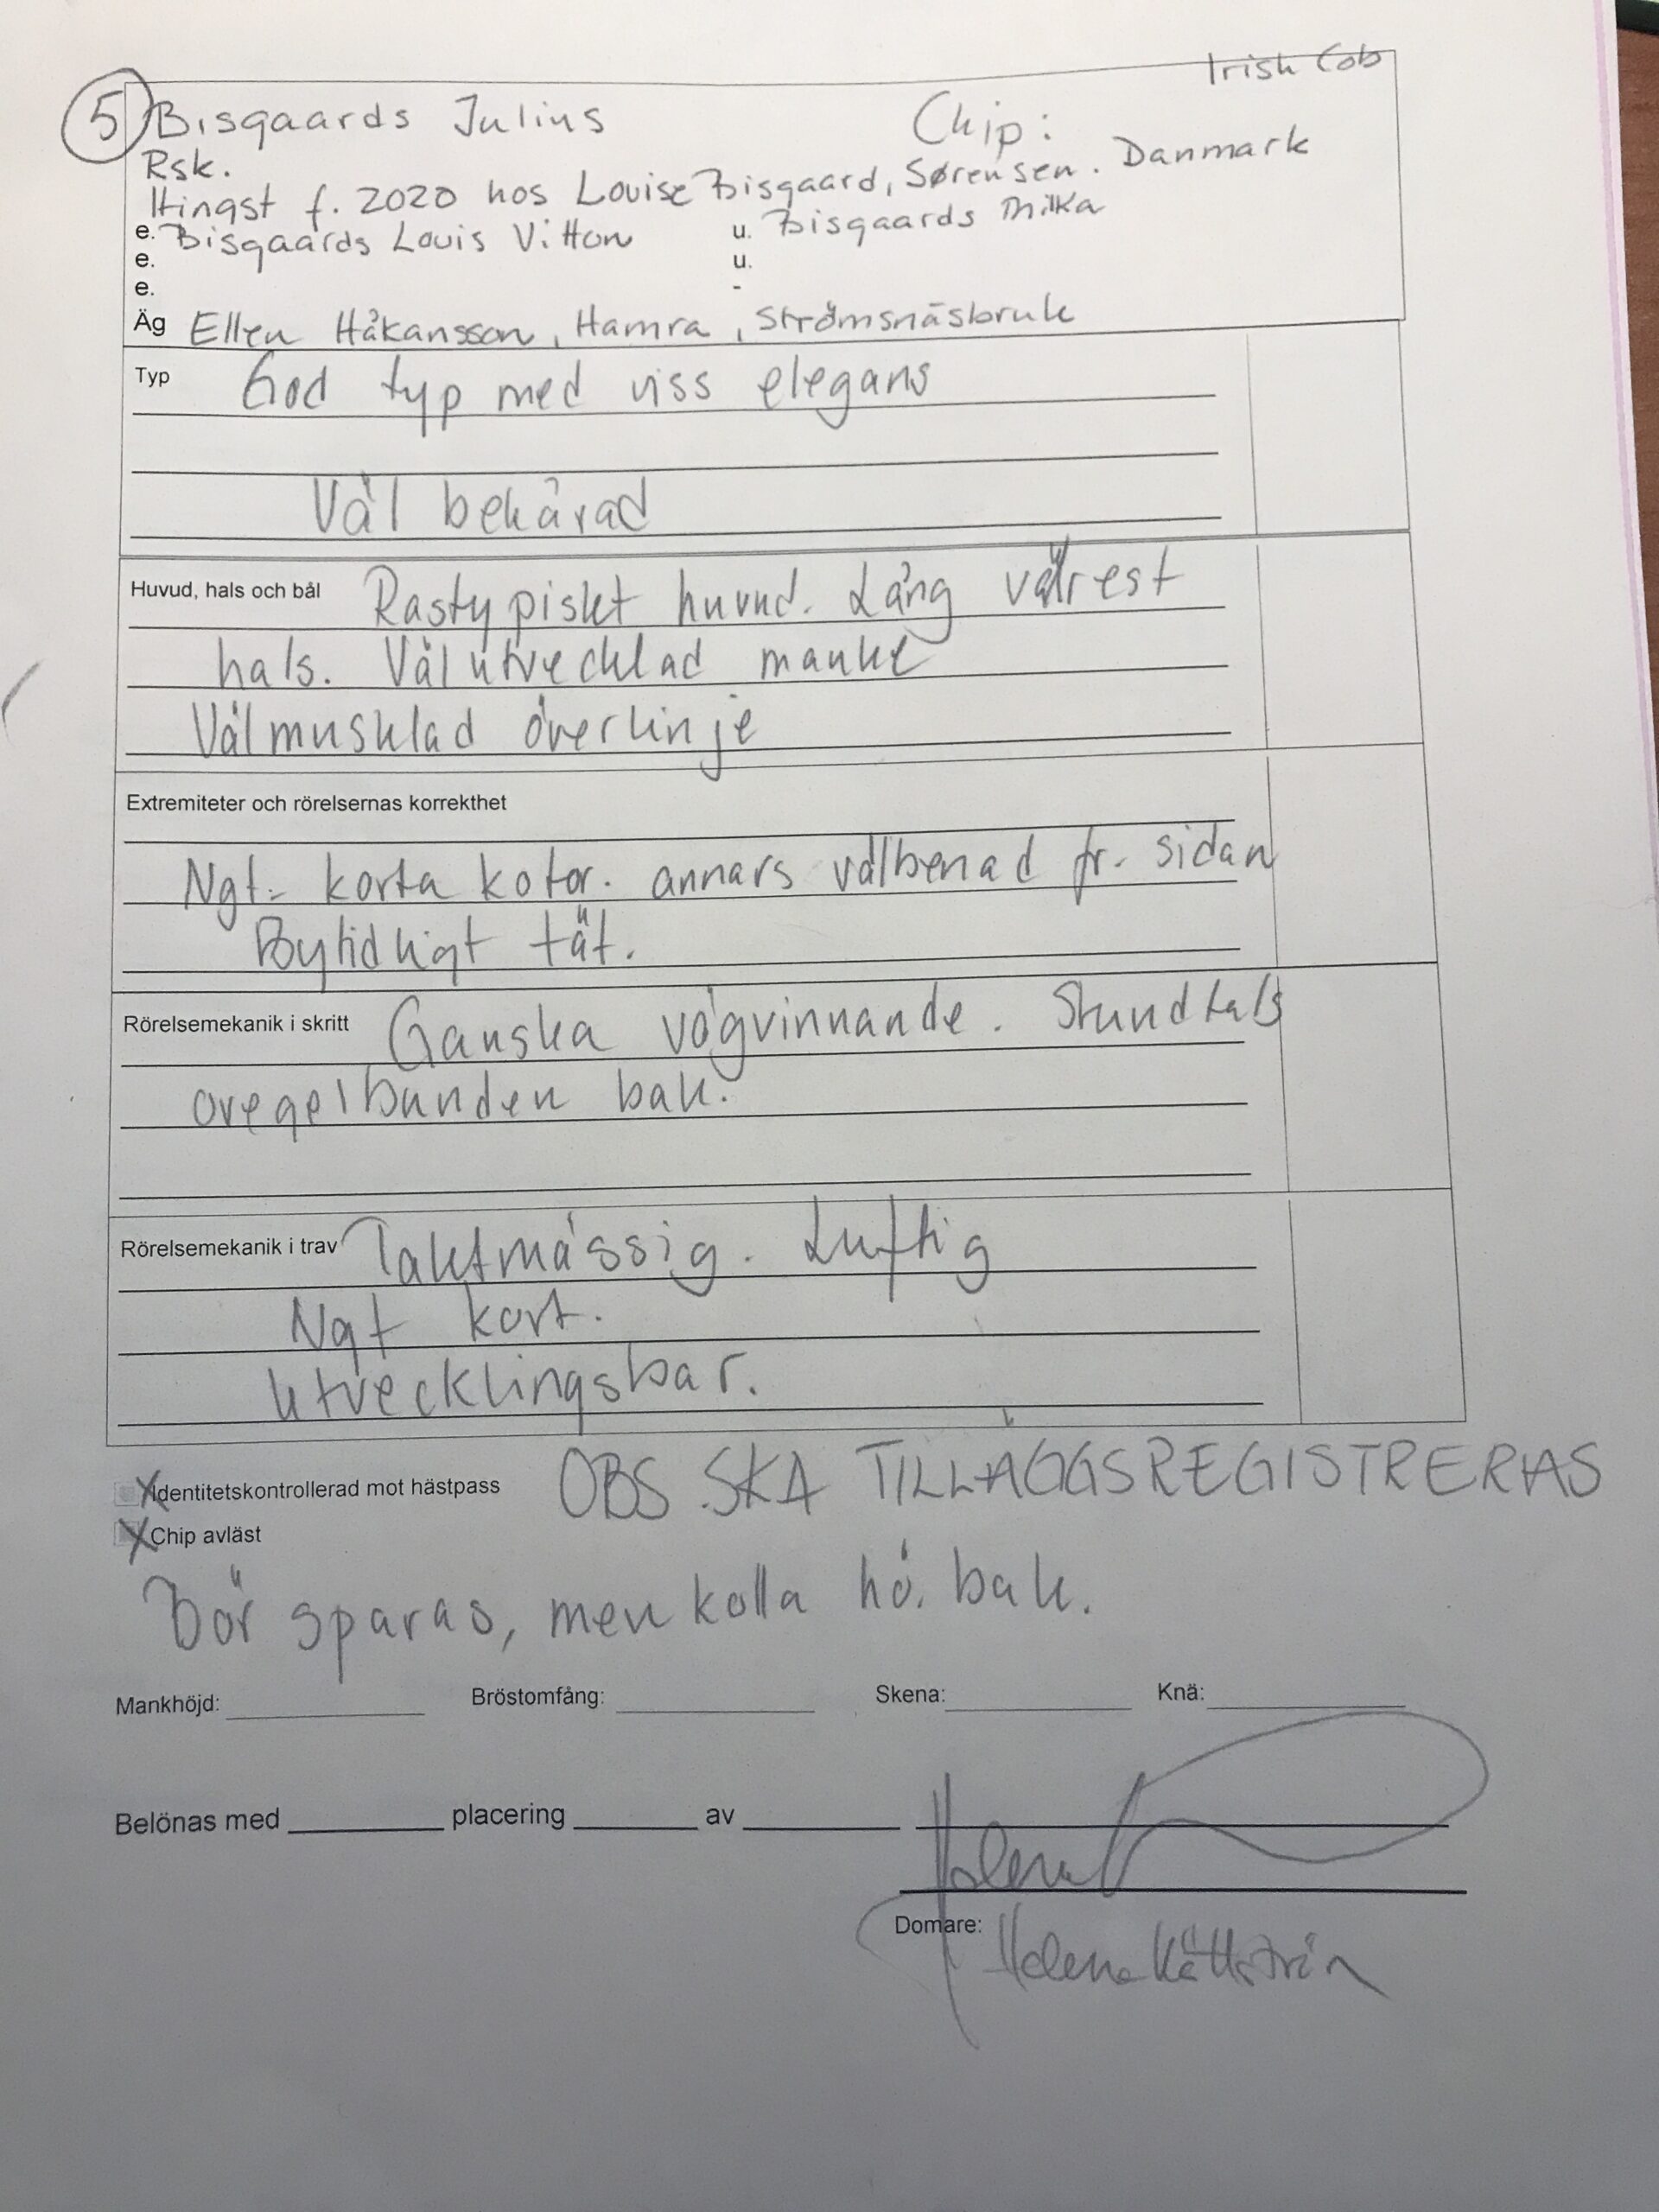 Irish Cob
5 Bisgaards Julius Chip:
Rsk.
Hingst f. 2020 hos Louise Bisgaard, Sørensen. Danmark
e. Bisgaards Louis Vitton u. Bisgaards Milka
e. u.
e. -
Äg Ellen Håkansson, Hamra, Strömsnäsbruk
Typ God typ med viss elegans
Väl behårad
Huvud, hals och bål Rastypiskt huvud. Lång välrest
hals. Väl utvecklad manke
Välmusklad överlinje
Extremiteter och rörelsernas korrekthet
Ngt. korta kotor. annars välbenad fr. sidan
Bytidligt tät.
Rörelsemekanik i skritt Ganska vägvinnande. Stundtals
oregelbunden bak.
Rörelsemekanik i trav Taktmässig. Luftig
Ngt kort.
Utvecklingsbar.
X Identitetskontrollerad mot hästpass OBS SKA TILLÄGGSREGISTRERAS
X Chip avläst
Bör sparas, men kolla hö. bak.
Mankhöjd: Bröstomfång: Skena: Knä:
Belönas med placering av
Domare: Helena